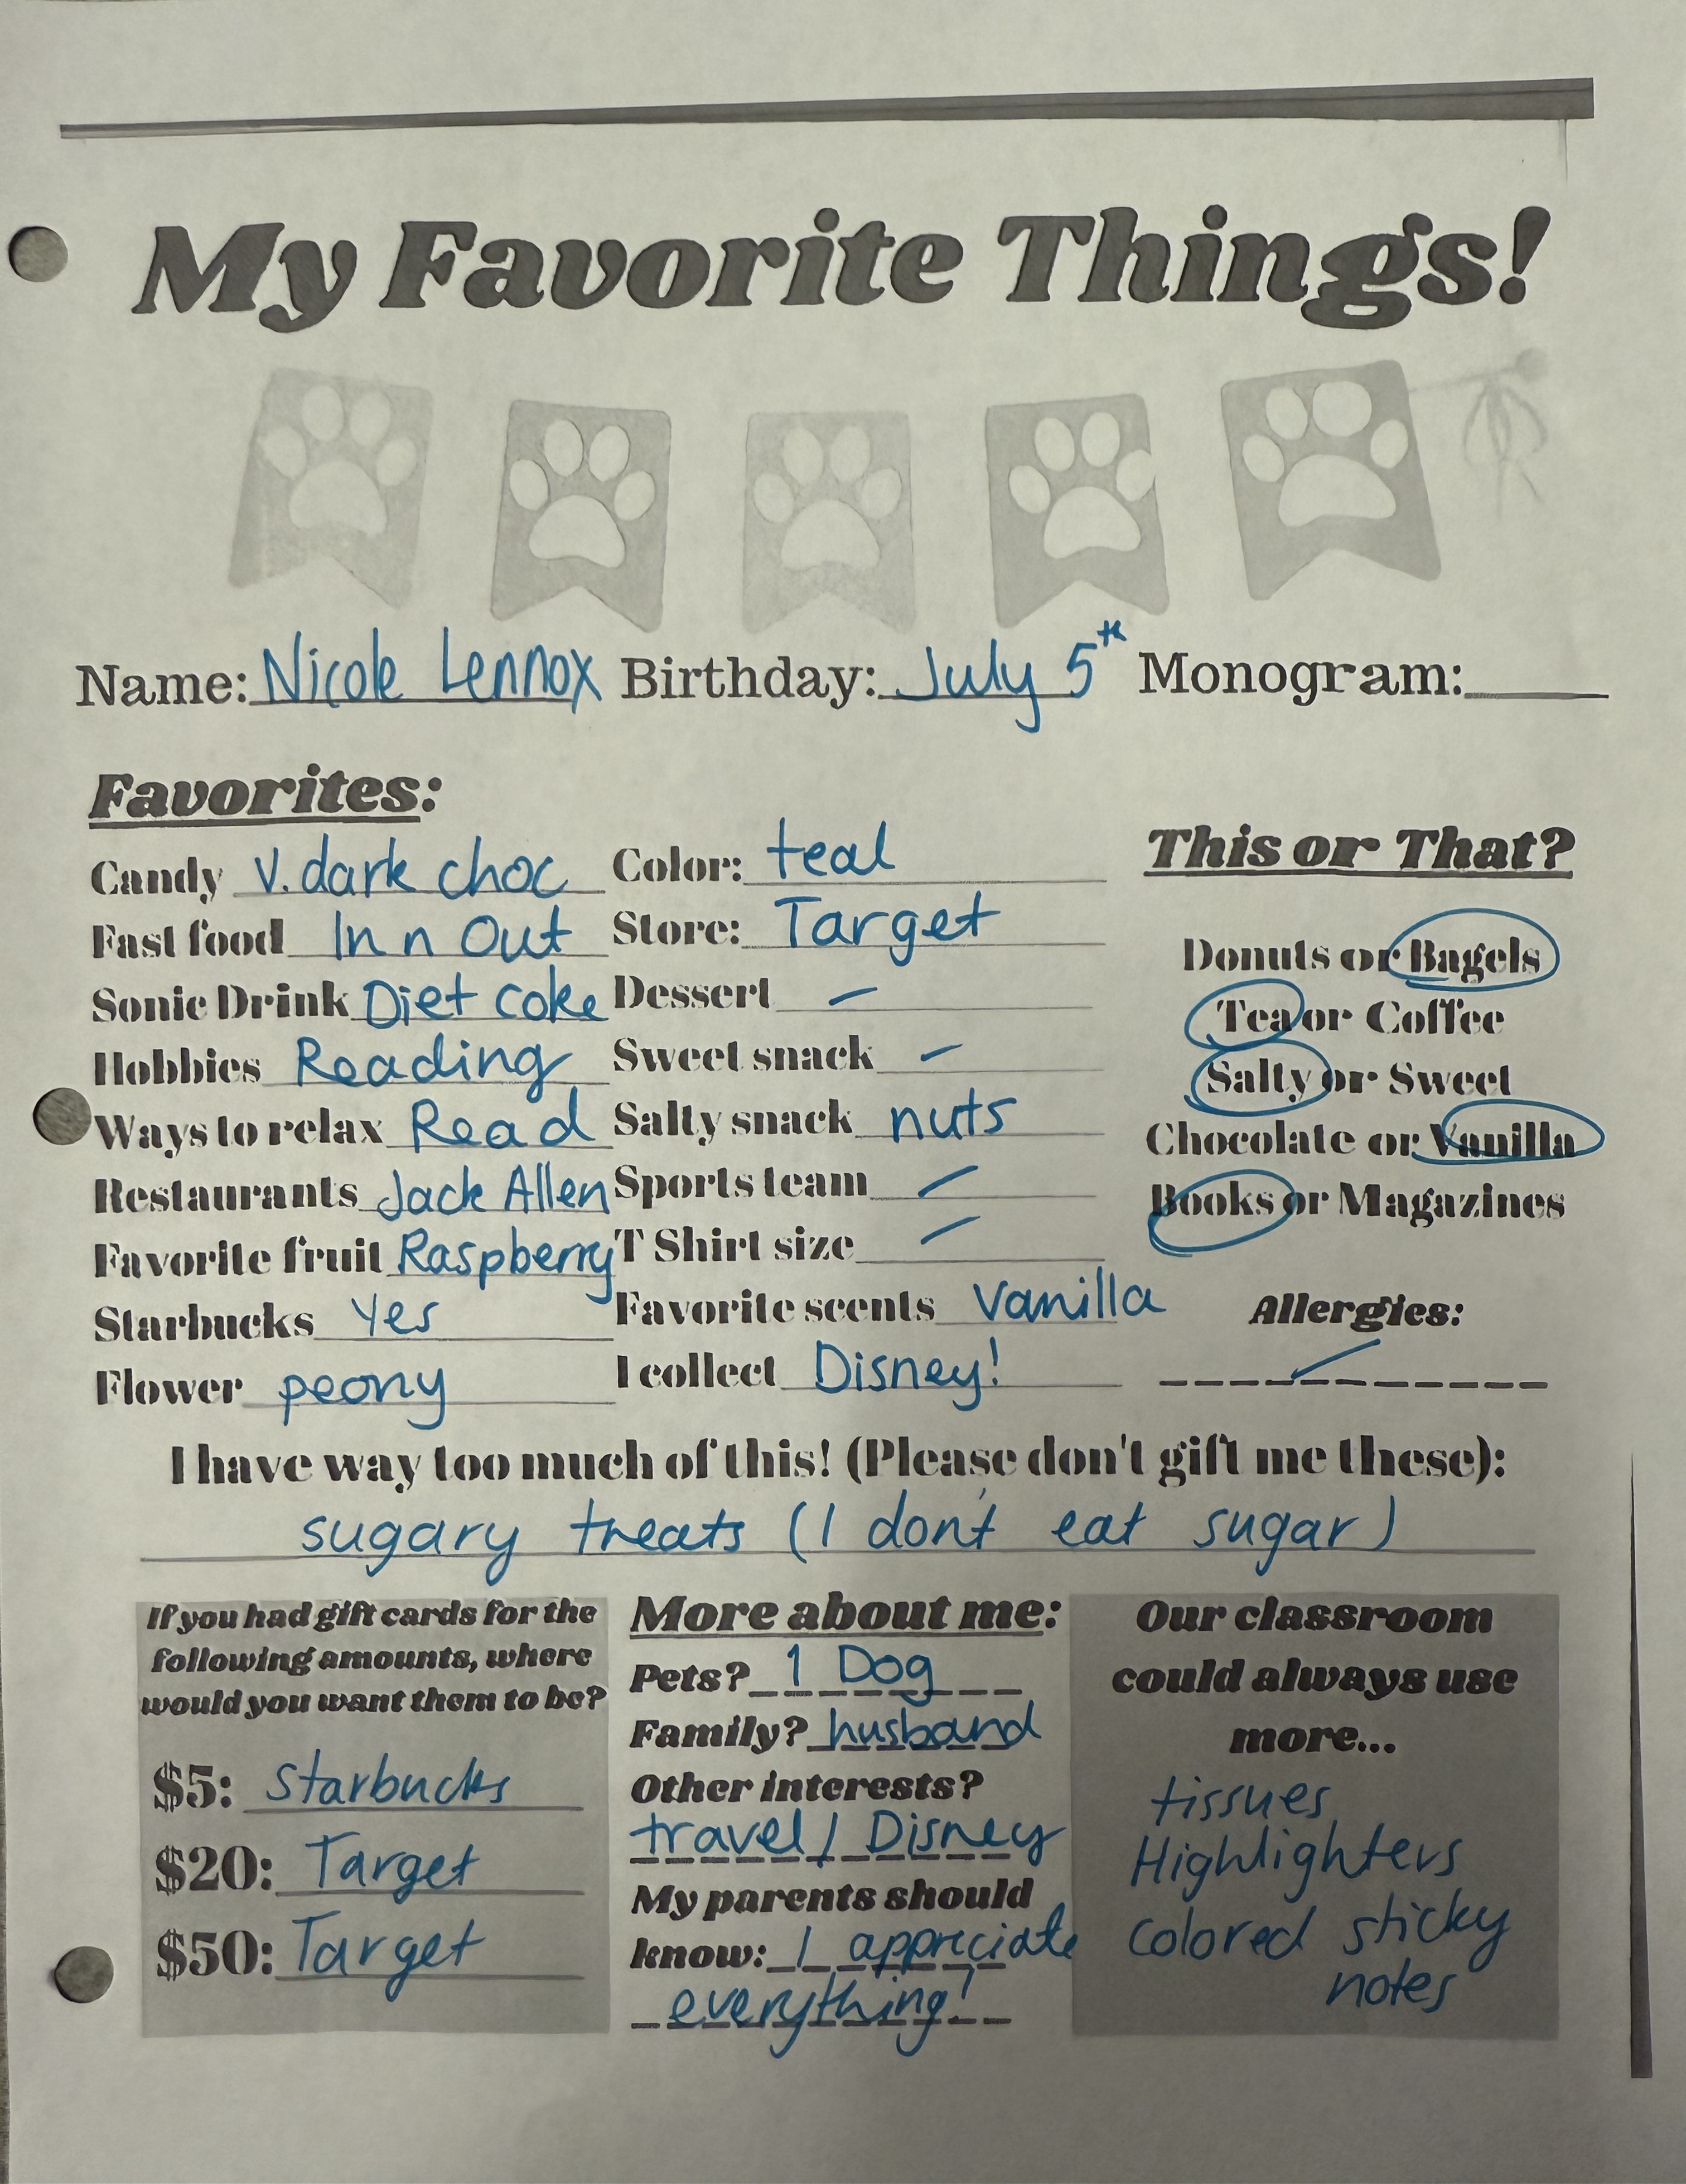 My Favorite Things!
Name: Nicole Lennox Birthday: July 5th Monogram:
Favorites:
Candy v. dark choc
Fast food In n Out
Sonic Drink Diet coke
Hobbies Reading
Ways to relax Read
Restaurants Jack Allen
Favorite fruit Raspberry
Starbucks Yes
Flower peony
Color: teal
Store: Target
Dessert –
Sweet snack –
Salty snack nuts
Sports team –
T Shirt size –
Favorite scents Vanilla
I collect Disney!
This or That?
Donuts or Bagels
Tea or Coffee
Salty or Sweet
Chocolate or Vanilla
Books or Magazines
Allergies:
I have way too much of this! (Please don't gift me these):
sugary treats (I don't eat sugar)
If you had gift cards for the
following amounts, where
would you want them to be?
$5: Starbucks
$20: Target
$50: Target
More about me:
Pets? 1 Dog
Family? husband
Other interests?
travel / Disney
My parents should
know: I appreciate
everything!
Our classroom
could always use
more...
tissues
Highlighters
colored sticky
notes